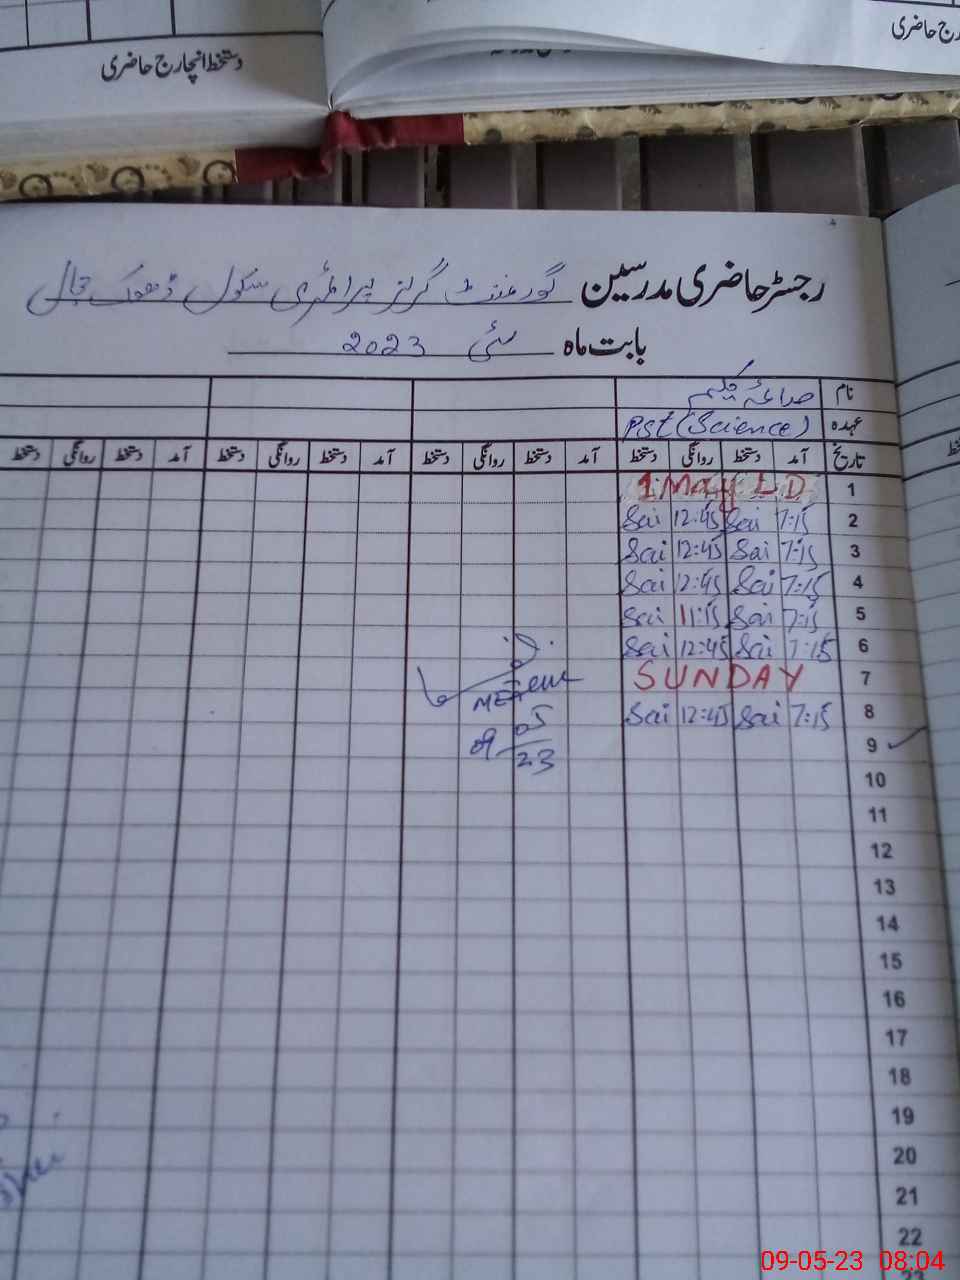 دستخط انچارج حاضری
رج حاضری
رجسٹر حاضری مدرسین گورنمنٹ گرلز پرائمری سکول ڈھوک
بابت ماہ مئی 2023
نام
عہدہ Pst (Science)
تاریخ آمد دستخط روانگی دستخط آمد دستخط روانگی دستخط آمد دستخط روانگی دستخط
1 1 May L D
2 7:15 Sai 12:45 Sai
3 7:15 Sai 12:45 Sai
4 7:15 Sai 12:45 Sai
5 7:15 Sai 11:15 Sai
6 7:15 Sai 12:45 Sai
7 SUNDAY
8 7:15 Sai 12:45 Sai
9
09 05
23
10
11
12
13
14
15
16
17
18
19
20
21
22
23
09-05-23 08:04